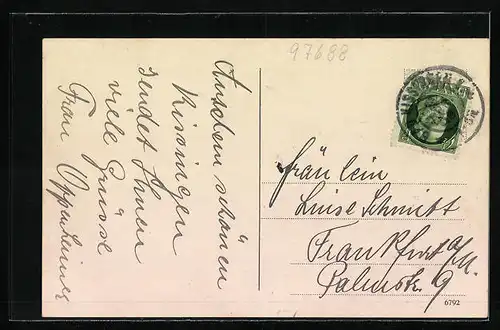 97688
Aus dem schönen
Kissingen
sendet Ihnen
viele Grüsse
Frau Oppenheimer
Fräulein
Luise Schmitt
Frankfurt a/M.
Palmstr. 9
6792